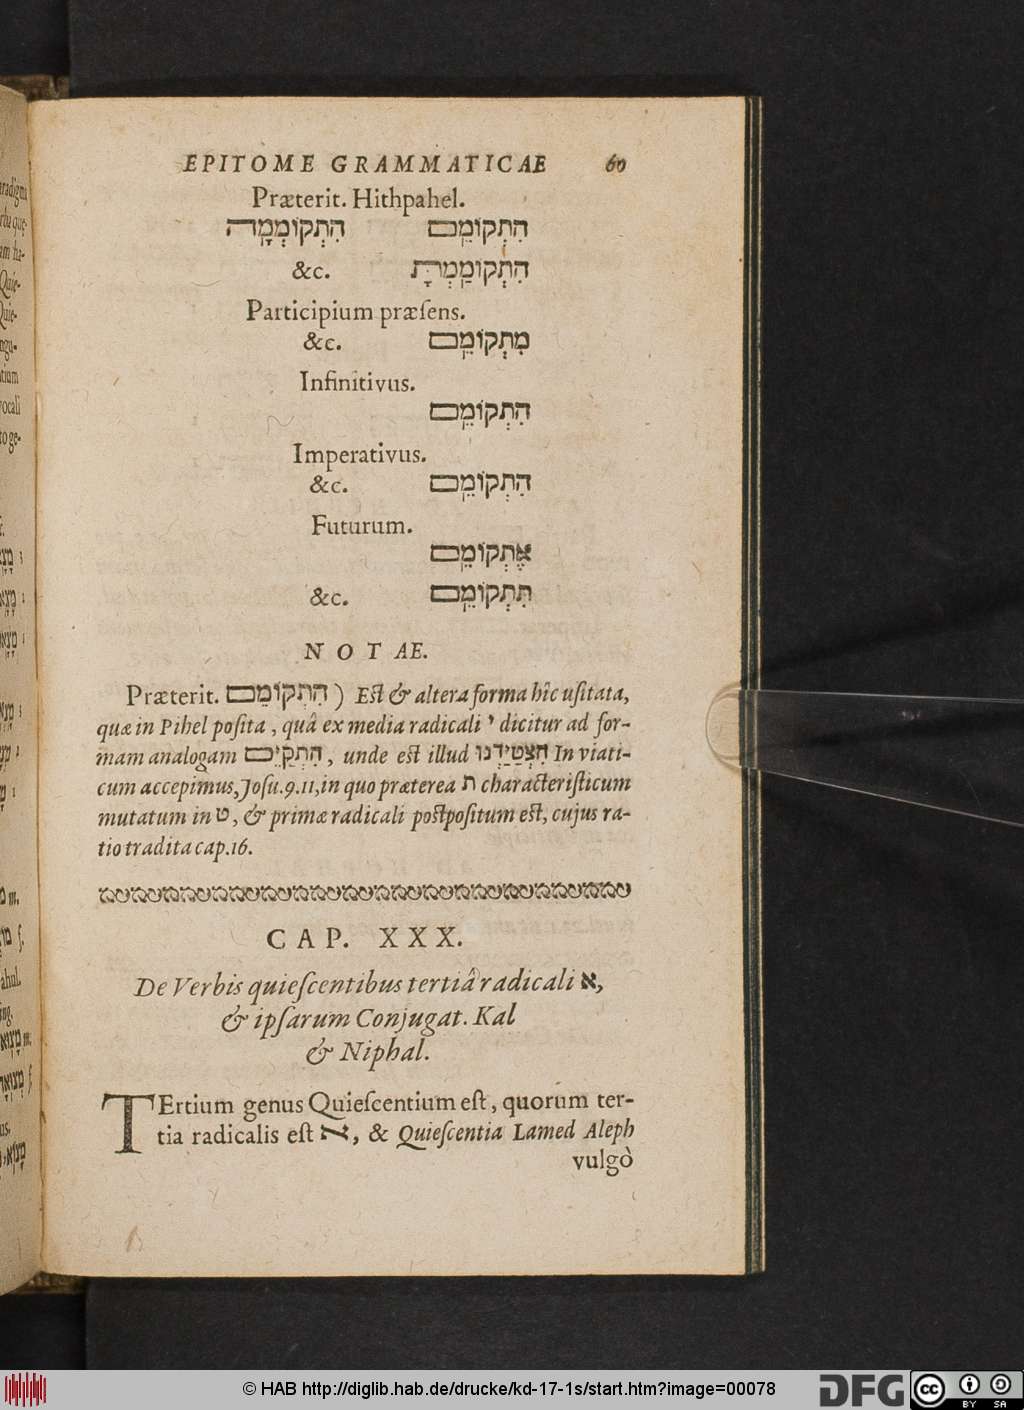 EPITOME GRAMMATICAE 60
Præterit. Hithpahel.
הִתְקוֹמֵם הִתְקוֹמְמָה
הִתְקוֹמַמְתָּ &c.
Participium præſens.
מִתְקוֹמֵם &c.
Infinitivus.
הִתְקוֹמֵם
Imperativus.
הִתְקוֹמֵם &c.
Futurum.
אֶתְקוֹמֵם
תִּתְקוֹמֵם &c.
NOTAE.
Præterit. הִתְקוֹמֵם) Eſt & altera forma hîc uſitata,
quæ in Pihel poſita, quâ ex media radicali י dicitur ad for-
mam analogam הִתְקַיֵּם, unde eſt illud הִצְטַיַּדְנוּ In viati-
cum accepimus, Joſu. 9. 11, in quo præterea ת characteriſticum
mutatum in ט, & primæ radicali poſtpoſitum eſt, cujus ra-
tio tradita cap. 16.
CAP. XXX.
De Verbis quieſcentibus tertiâ radicali א,
& ipſarum Conjugat. Kal
& Niphal.
TErtium genus Quieſcentium eſt, quorum ter-
tia radicalis eſt א, & Quieſcentia Lamed Aleph
vulgò
© HAB http://diglib.hab.de/drucke/kd-17-1s/start.htm?image=00078
DFG cc BY SA